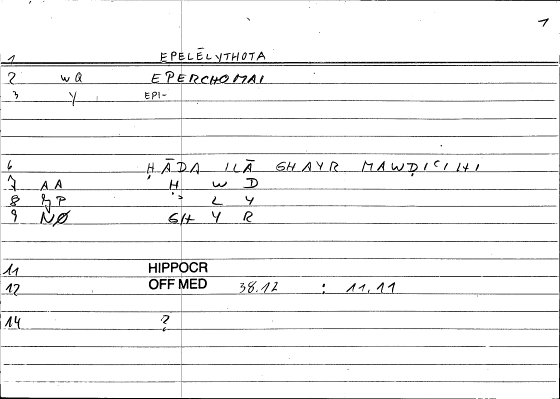 1
1 EPELĒLYTHOTA
2 WQ EPERCHOMAI
3 Y EPI-
6 ḤĀDA ILĀ GHAYR MAWḌICIHI
7 AA Ḥ W D
8 P L Y
9 NØ GH Y R
11 HIPPOCR
12 OFF MED 38.12 : 11,11
14 ?